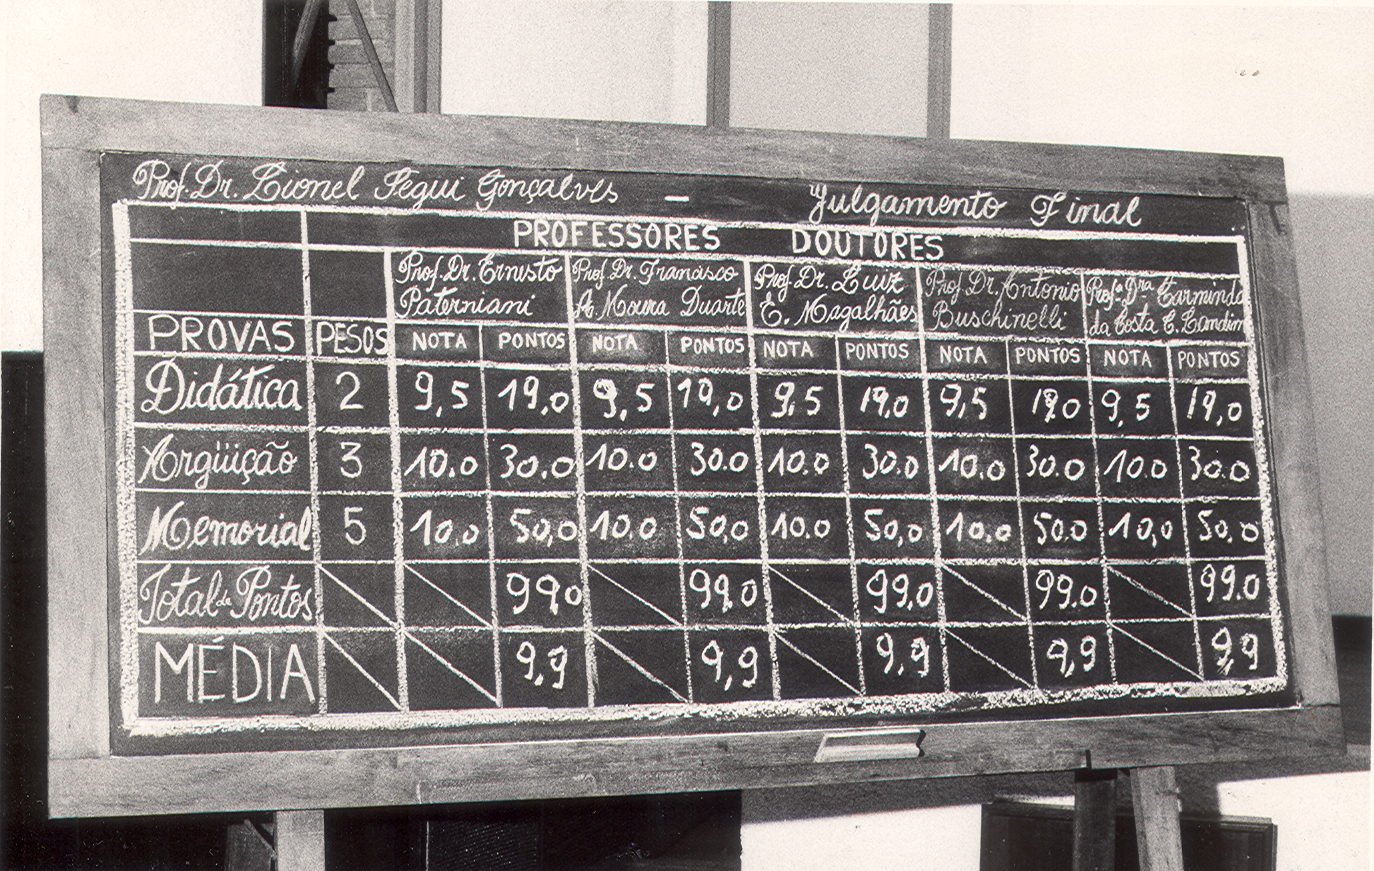 Prof. Dr. Lionel Segui Gonçalves — Julgamento Final
PROFESSORES DOUTORES
Prof. Dr. Ernesto Prof. Dr. Francisco Prof. Dr. Luiz Prof. Dr. Antonio Profª. Drª Carminda
Paterniani A. Moura Duarte E. Magalhães Buschinelli da Costa C. Landim
PROVAS PESOS NOTA PONTOS NOTA PONTOS NOTA PONTOS NOTA PONTOS NOTA PONTOS
Didática 2 9,5 19,0 9,5 19,0 9,5 19,0 9,5 19,0 9,5 19,0
Argüição 3 10.0 30.0 10.0 30.0 10.0 30.0 10.0 30.0 10.0 30.0
Memorial 5 10.0 50,0 10.0 50,0 10.0 50,0 10.0 50.0 10,0 50,0
Total de Pontos 99,0 99,0 99,0 99.0 99.0
MÉDIA 9,9 9,9 9,9 9,9 9,9